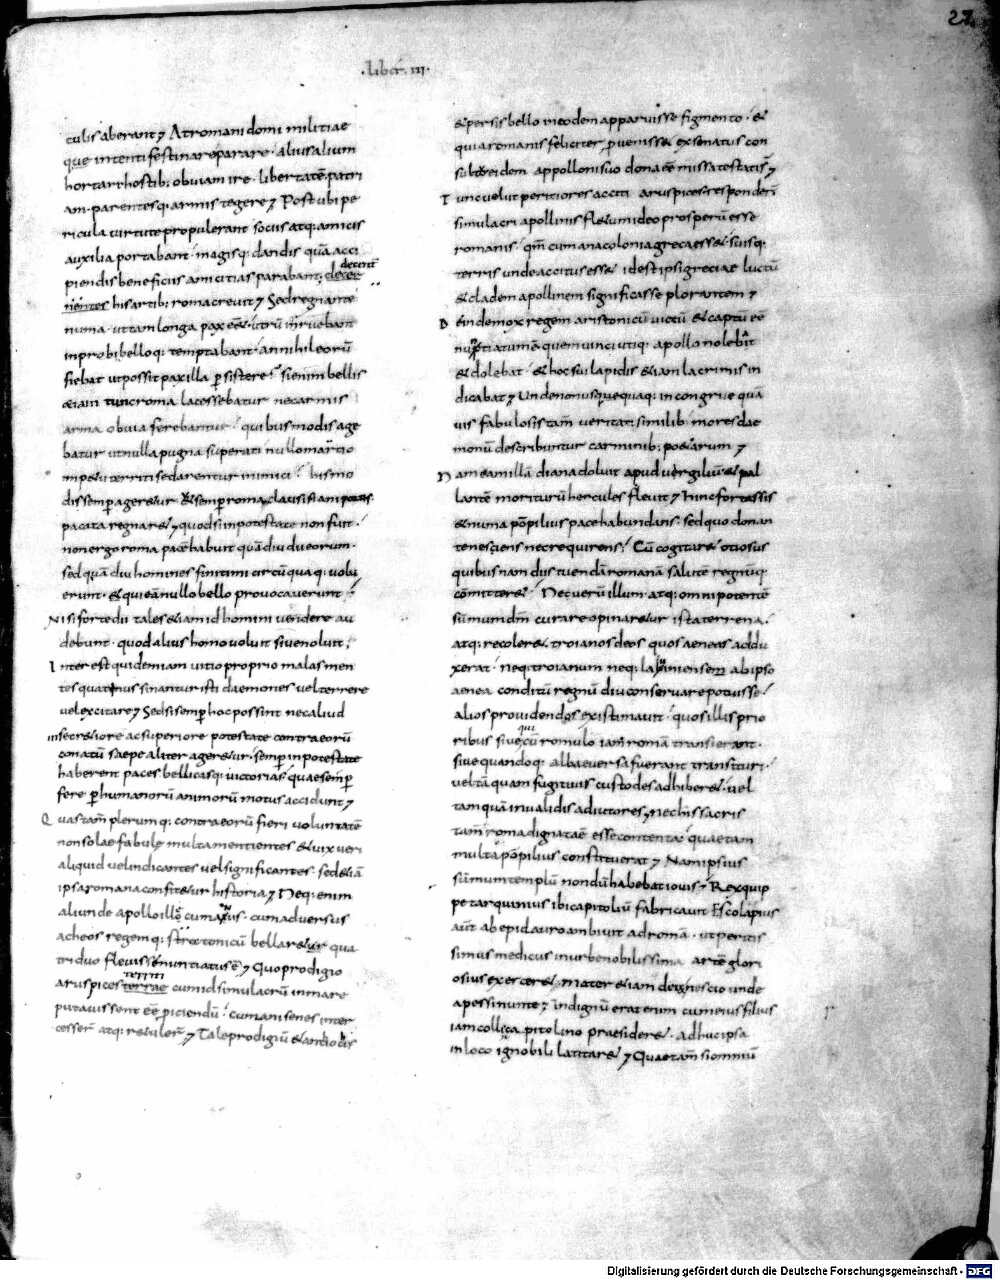 27
.liber. III.
culis aberant; At romani domi militiae
que intenti festinare parare. alius alium
hortari hostib; obviam ire. libertatē. patri
am. parentesq; armis tegere; Post ubi pe
ricula virtute propulerant sociis atq; amicis
auxilia portabant. magisq; dandis quā acci
piendis beneficiis amicitias parabant;
his artib; roma crevit; Sed regnante
numa. ut tam longa pax eēt utrū inruebant
inprobi belloq; temptabant. an nihil eorū
fiebat ut possit pax illa persistere? Si enim bellis
etiam tunc roma lacessebatur nec armis
arma obvia ferebantur. quibus modis age
batur ut nulla pugna superati nullo martio
impetu territi sedarentur inimici. his mo
dis semp ageretur & semp roma clausis iani portis.
pacata regnaret; quod si in potestate non fuit.
non ergo roma pacē habuit quādiu dii eorum.
sed quādiu homines finitimi circūquaq; volu
erunt. qui eā nullo bello provocaverunt.
Nisi forte dii tales etiam id homini vendere au
debunt. quod alius homo voluit sive noluit.
Interest quidem iam vitio proprio malas men
tes quatenus sinantur isti daemones vel terrere
vel excitare; Sed si semp hoc possint nec aliud
secretiore ac superiore potestate contra eorū
conatū saepe aliter ageretur. semp in potestate
haberent paces bellicasq; victorias. quae semp
fere p humanorū animorū motus accidunt;
Quas tam̄ plerumq; contra eorū fieri voluntatē
non solae fabulę multa mentientes & vix veri
aliquid vel indicantes vel significantes. sed etiā
ipsa romana confitetur historia; Neq; enim
aliunde apollo ille cumanus. cum adversus
acheos regemq; aristonicū bellaretur qua
triduo flevisse nuntiatus ē; Quo prodigio
aruspices territi cum id simulacrū in mare
putavissent eē piciendū. cumani senes inter
cesser̄ atq; retuler̄; Tale prodigiū & antiochi
& persis bello in eodem apparuisse figmento. &
quia romanis feliciter pvenisset ex senatus con
sulto eidem appollini suo dona eē missa testati sunt;
Tunc velut peritiores acciti aruspices responderunt
simulacri apollinis fletum ideo prosperū esse
romanis. qm̄ cumana colonia greca esset. suisq;
terris unde accitus esset. id est ipsi greciae luctū
& cladem apollinem significasse plorantem;
Deinde mox regem aristonicū victū & captū eē
nuntiatum ē quem vinci utiq; apollo nolebat
& dolebat. & hoc sui lapidis etiam lacrimis in
dicabat; Unde non usquequaq; incongrue quā
vis fabulosis tam̄ veritati similib; mores dae
monū describuntur carminib; poetarum;
Nam camillā diana doluit apud vergiliū & pal
lantē moriturū hercules flevit; Hinc fortassis
& numa pōpilius pace habundans. sed quo donan
te nesciens nec requirens. Cū cogitaret otiosus
quibusnam diis tuendā romanā salutē regnūq;
cōmitteret. Nec verū illum. atq; omnipotentē
sūmum dm̄ curare opinaretur ista terrena.
atq; recoleret troianos deos quos aeneas addu
xerat. neq; troianum neq; laviniensem ab ipso
aenea conditū regnū diu conservare potuisse.
alios providendos existimavit. quos illis prio
ribus sive qui cū romulo iam romā transierant.
sive quandoq; alba eversa fuerant transituri.
vel tāquam fugitivis custodes adhiberet. vel
tamquā invalidis adiutores; nec his sacris
tam̄ roma dignata ē esse contenta. quae tam
multa pōpilius constituerat; Nam ipsius
sūmum templū nondū habebat iovis; Rex quip
pe tarquinius ibi capitoliū fabricavit Escolapius
aut̄ ab epidauro ambivit ad romā. ut peritis
simus medicus in urbe nobilissima artē glori
osius exerceret. mater etiam deū nescio unde
a pessinunte; indignū erat enim cum eius filius
iam colli capitolino praesideret. adhuc ipsa
in loco ignobili latitaret; Quae tam̄ si omniū
Digitalisierung gefördert durch die Deutsche Forschungsgemeinschaft - DFG